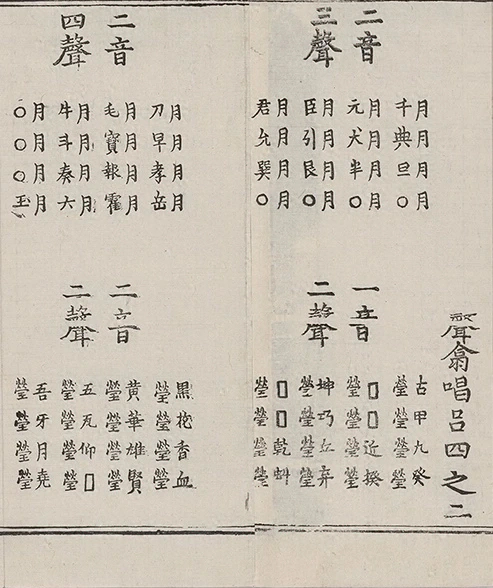 聲翕唱呂四之二
二音
三聲
月月月月
千典旦○
月月月月
元犬半○
月月月月
臣引艮○
月月月月
君允巽○
一音
二聲
古甲九癸
瑩瑩瑩瑩
□□近揆
瑩瑩瑩瑩
坤巧丘弃
瑩瑩瑩瑩
□□乾蚪
瑩瑩瑩瑩
二音
四聲
月月月月
刀早孝岳
月月月月
毛寶報霍
月月月月
牛斗奏六
月月月月
○○○玉
二音
二聲
黑花香血
瑩瑩瑩瑩
黃華雄賢
瑩瑩瑩瑩
五瓦仰□
瑩瑩瑩瑩
吾牙月堯
瑩瑩瑩瑩